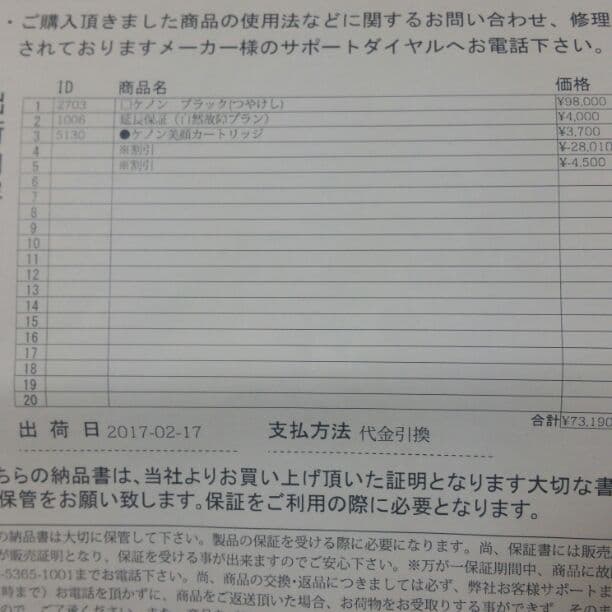 ・ご購入頂きました商品の使用法などに関するお問い合わせ、修理
されておりますメーカー様のサポートダイヤルへお電話下さい。
ID 商品名 価格
1 2703 □ケノン ブラック(つやけし) ¥98,000
2 1006 延長保証（自然故障プラン） ¥4,000
3 5130 ●ケノン美顔カートリッジ ¥3,700
4 ※割引 ¥-28,010
5 ※割引 ¥-4,500
6
7
8
9
10
11
12
13
14
15
16
17
18
19
20
合計 ¥73,190
出荷日 2017-02-17 支払方法 代金引換
ちらの納品書は、当社よりお買い上げ頂いた証明となります大切な書
保管をお願い致します。保証をご利用の際に必要となります。
の納品書は大切に保管して下さい。製品の保証を受ける際に必要になります。尚、保証書には販売
が販売証明となり、保証を受ける事が出来ますのでご安心下さい。※万が一保証期間中、商品に故
-5365-1001までお電話下さい。尚、商品の交換・返品につきましては必ず、弊社お客様サポートま
時まで）お電話を頂かずに、商品をご返送頂いた場合、お荷物をお受取りする事ができず、その